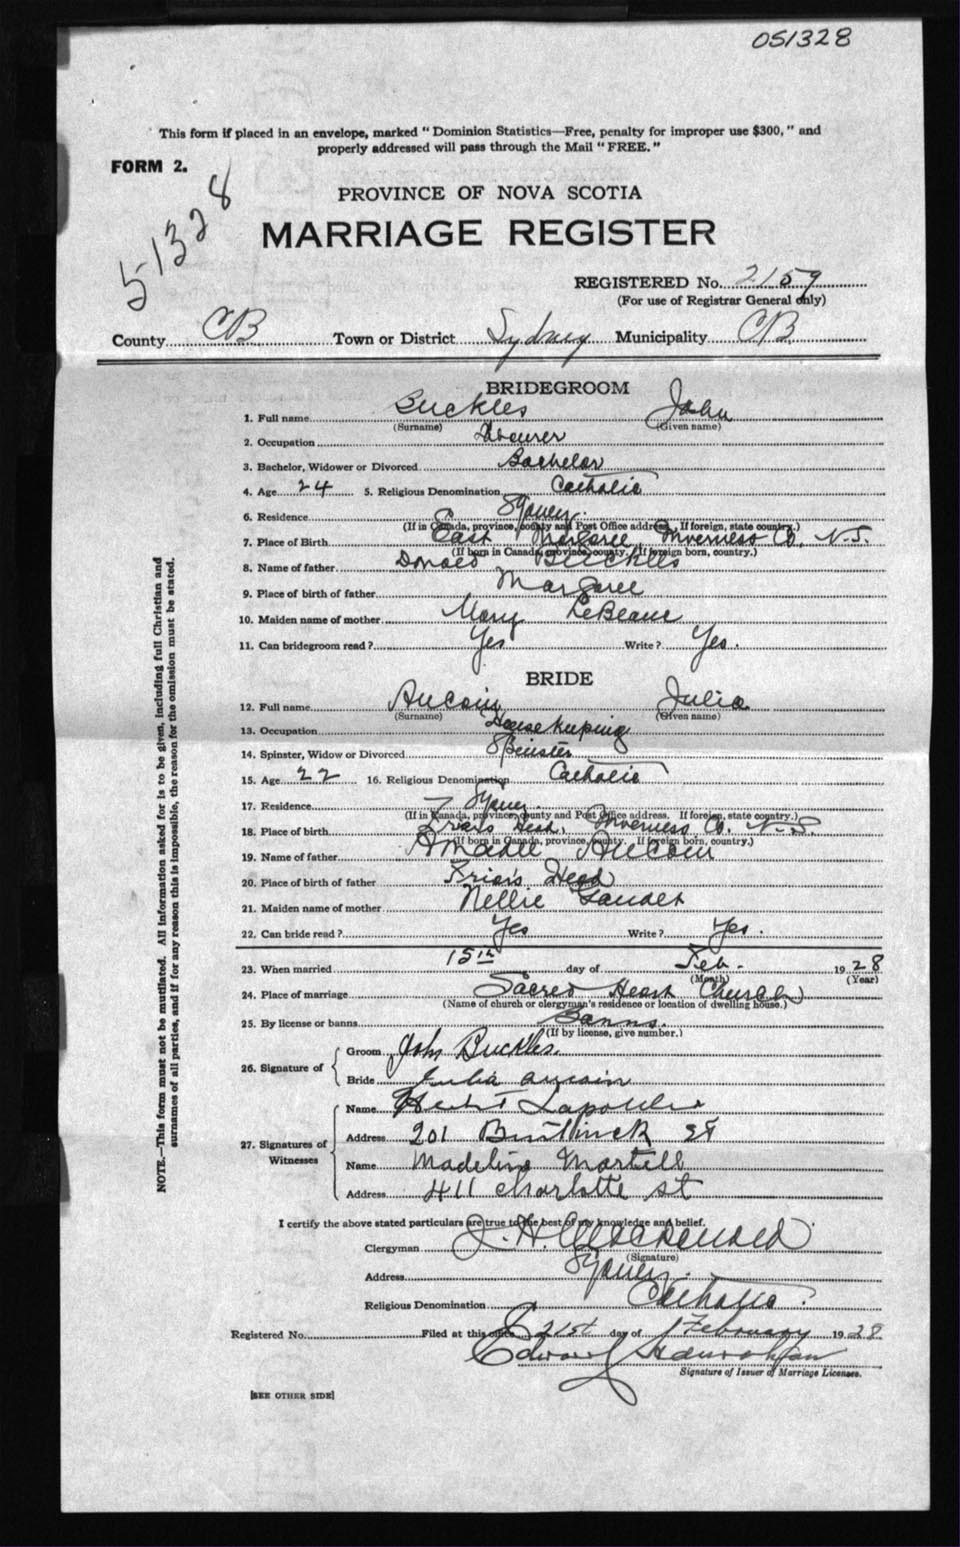 051328
This form if placed in an envelope, marked "Dominion Statistics—Free, penalty for improper use $300," and
properly addressed will pass through the Mail "FREE."
FORM 2.
51328
PROVINCE OF NOVA SCOTIA
MARRIAGE REGISTER
REGISTERED No. 2159
(For use of Registrar General only)
County CB Town or District Sydney Municipality CB
BRIDEGROOM
1. Full name Buckles John
(Surname) (Given name)
2. Occupation
3. Bachelor, Widower or Divorced Bachelor
4. Age 24 5. Religious Denomination Catholic
6. Residence Sydney.
(If in Canada, province, county and Post Office address. If foreign, state country.)
7. Place of Birth East Margaree Inverness Co. N.S.
(If born in Canada, province, county. If foreign born, country.)
8. Name of father Donald Buckles
9. Place of birth of father Margaree
10. Maiden name of mother Mary LeBlanc
11. Can bridegroom read? Yes Write? Yes.
BRIDE
12. Full name Aucoin Julia
(Surname) (Given name)
13. Occupation Housekeeping
14. Spinster, Widow or Divorced Spinster
15. Age 22 16. Religious Denomination Catholic
17. Residence Sydney.
(If in Canada, province, county and Post Office address. If foreign, state country.)
18. Place of birth Friars Head, Inverness Co. N.S.
(If born in Canada, province, county. If foreign born, country.)
19. Name of father Amadee Aucoin
20. Place of birth of father Friar's Head
21. Maiden name of mother Nellie Gaudet
22. Can bride read? Yes Write? Yes.
23. When married 15th day of Feb. 1928
(Month) (Year)
24. Place of marriage Sacred Heart Church
(Name of church or clergyman's residence or location of dwelling house.)
25. By license or banns Banns.
(If by license, give number.)
26. Signature of
Groom John Buckles.
Bride Julia aucoin
27. Signatures of Witnesses
Name
Address 201 St
Name Madeline Martell
Address 411 Charlotte st
I certify the above stated particulars are true to the best of my knowledge and belief.
Clergyman J. H.
(Signature)
Address Sydney.
Religious Denomination Catholic.
Registered No. Filed at this office 21st day of February 1928
Edward
Signature of Issuer of Marriage Licenses.
[SEE OTHER SIDE]
NOTE.—This form must not be mutilated. All information asked for is to be given, including full Christian and
surnames of all parties, and if for any reason this is impossible, the reason for the omission must be stated.